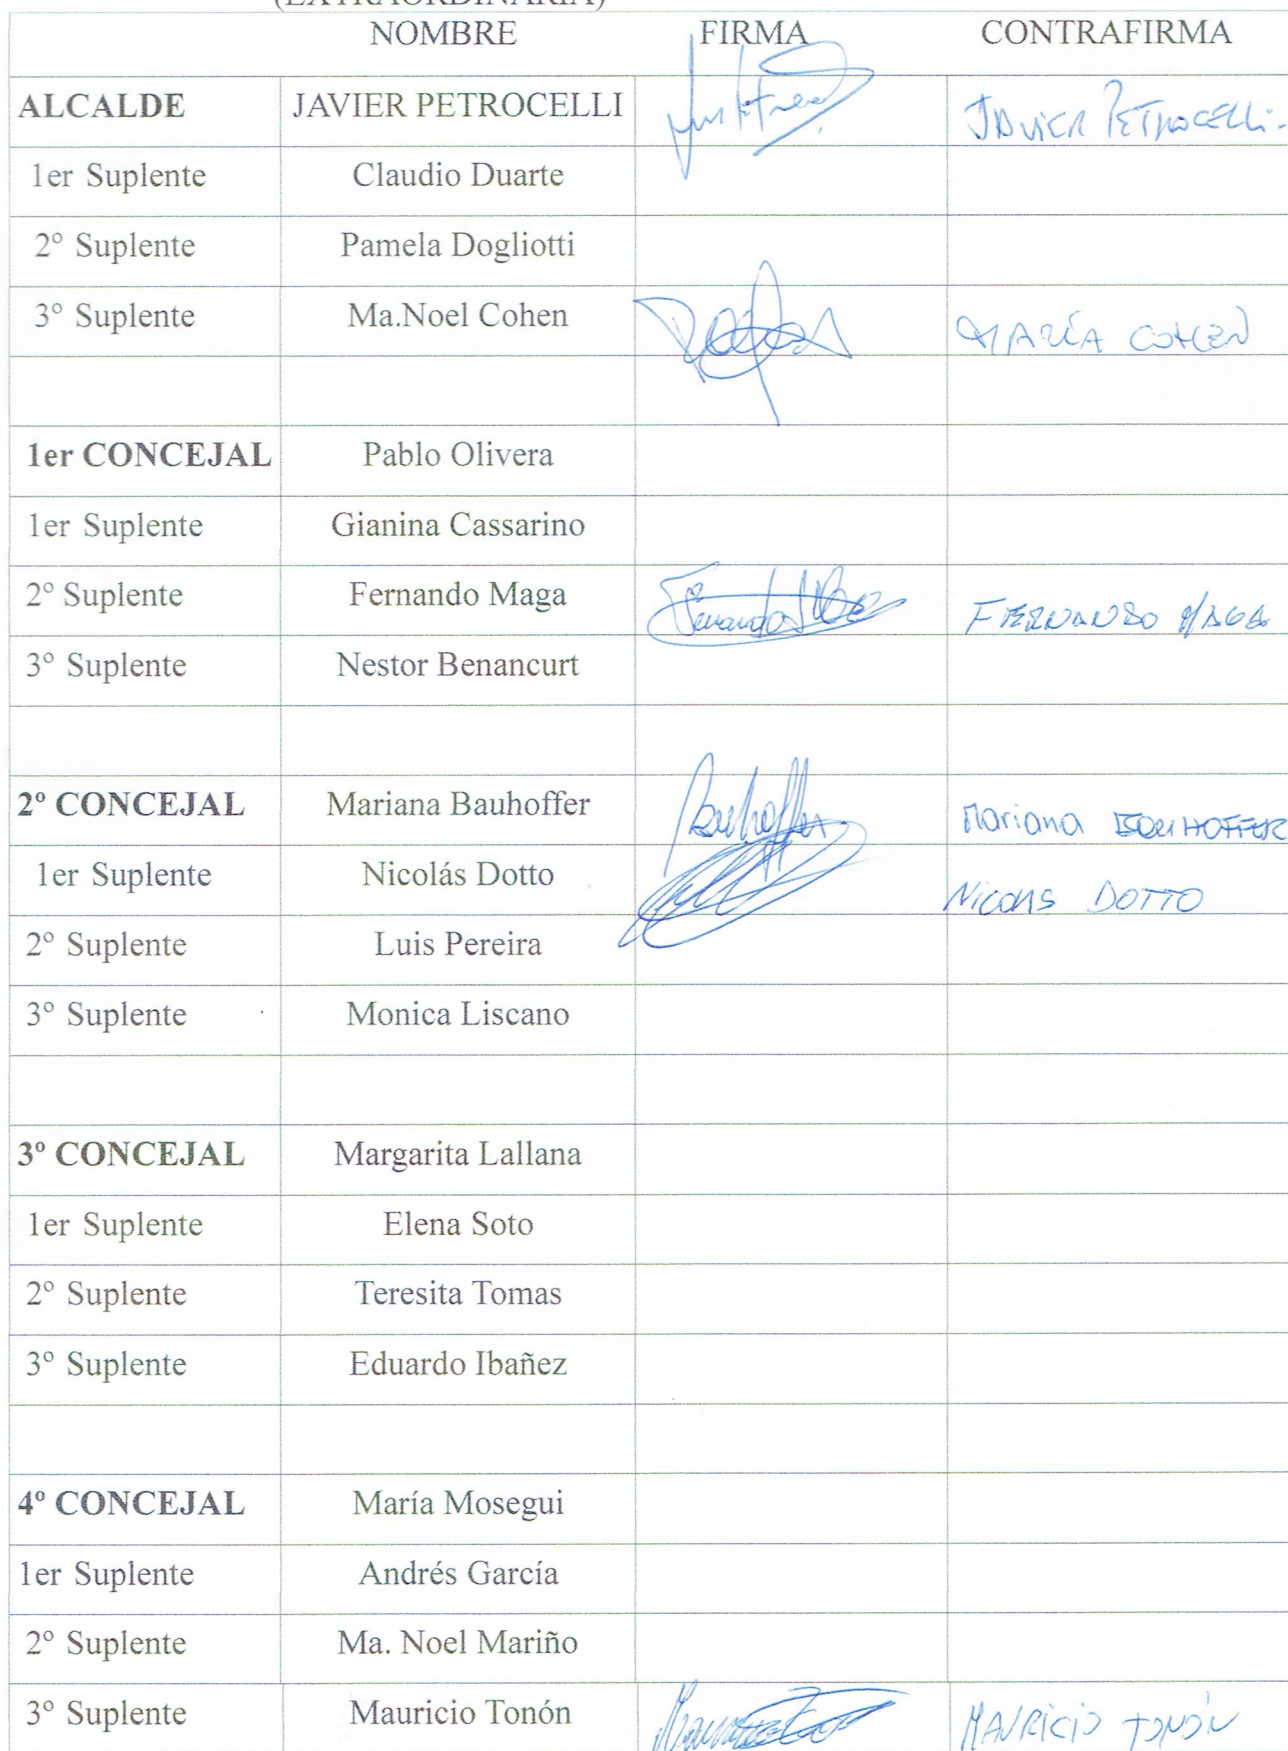 (EXTRAORDINARIA)
NOMBRE FIRMA CONTRAFIRMA
ALCALDE JAVIER PETROCELLI JAVIER PETROCELLI.
1er Suplente Claudio Duarte
2° Suplente Pamela Dogliotti
3° Suplente Ma.Noel Cohen MARÍA COHEN
1er CONCEJAL Pablo Olivera
1er Suplente Gianina Cassarino
2° Suplente Fernando Maga Fernando FERNANDO MAGA
3° Suplente Nestor Benancurt
2º CONCEJAL Mariana Bauhoffer Bauhoffer Mariana BAUHOFFER
1er Suplente Nicolás Dotto DOTTO
2° Suplente Luis Pereira
3° Suplente Monica Liscano
3º CONCEJAL Margarita Lallana
1er Suplente Elena Soto
2° Suplente Teresita Tomas
3° Suplente Eduardo Ibañez
4º CONCEJAL María Mosegui
1er Suplente Andrés García
2° Suplente Ma. Noel Mariño
3° Suplente Mauricio Tonón MAURICIO TONÓN